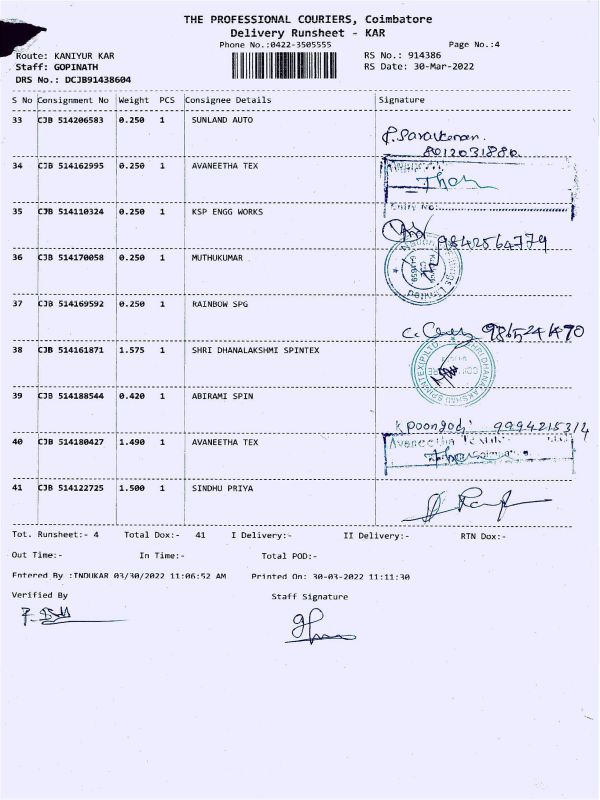 THE PROFESSIONAL COURIERS, Coimbatore
Delivery Runsheet - KAR
Phone No.:0422-3505555 Page No.:4
Route: KANIYUR KAR RS No.: 914386
Staff: GOPINATH RS Date: 30-Mar-2022
DRS No.: DCJB91438604
S No Consignment No Weight PCS Consignee Details Signature
33 CJB 514206583 0.250 1 SUNLAND AUTO
P. Saravanan.
8012031880
34 CJB 514162995 0.250 1 AVANEETHA TEX
Entry No:
35 CJB 514110324 0.250 1 KSP ENGG WORKS
9842564779
36 CJB 514170058 0.250 1 MUTHUKUMAR
37 CJB 514169592 0.250 1 RAINBOW SPG
9865241470
38 CJB 514161871 1.575 1 SHRI DHANALAKSHMI SPINTEX
SHRI DHANALAKSHMI SPINNTEX(P)LTD
39 CJB 514188544 0.420 1 ABIRAMI SPIN
K Poongodi 9994215314
40 CJB 514180427 1.490 1 AVANEETHA TEX
Avaneetha Textile
41 CJB 514122725 1.500 1 SINDHU PRIYA
Tot. Runsheet:- 4 Total Dox:- 41 I Delivery:- II Delivery:- RTN Dox:-
Out Time:- In Time:- Total POD:-
Entered By :INDUKAR 03/30/2022 11:06:52 AM Printed On: 30-03-2022 11:11:30
Verified By Staff Signature